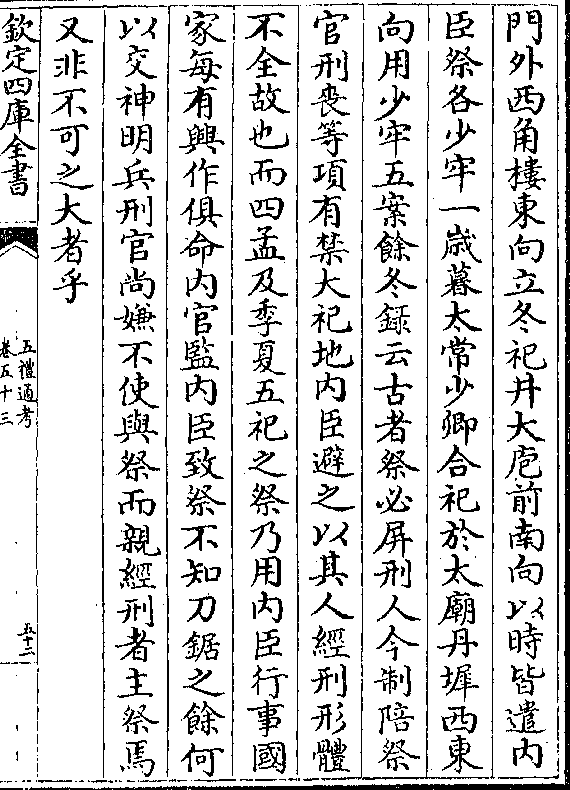 門外西角樓東向立冬祀井大庖前南向以時皆遣内
臣祭各少牢一歲暮太常少卿合祀於太廟丹墀西東
向用少牢五案餘冬録云古者祭必屏刑人今制陪祭
官刑喪等項有禁大祀地内臣避之以其人經刑形體
不全故也而四孟及季夏五祀之祭乃用内臣行事國
家每有興作俱命内官監内臣致祭不知刀鋸之餘何
以交神明兵刑官尚嫌不使與祭而親經刑者主祭焉
又非不可之大者乎
欽定四庫全書
五禮通考
卷五十三
五十二